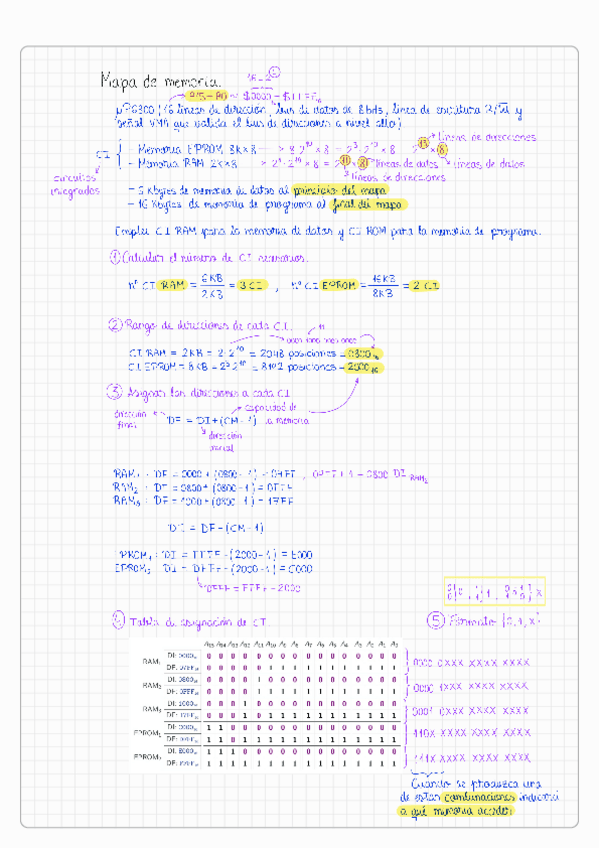 Mapa de memoria.
μP6800 (16 líneas de dirección, bus de datos de 8 bits, línea de escritura R/W y
señal VMA que valida el bus de direcciones a nivel alto)
líneas de direcciones
CI
- Memoria EPROM 8K×8 → 8·2¹⁰×8 = 2³·2¹⁰×8 2¹³×8
- Memoria RAM 2K×8 → 2¹·2¹⁰×8 = 2¹¹×8 líneas de datos líneas de datos
circuitos integrados
líneas de direcciones
- 6 Kbytes de memoria de datos al principio del mapa
- 16 Kbytes de memoria de programa al final del mapa
Emplea CI RAM para la memoria de datos y CI ROM para la memoria de programa.
① Calcular el número de CI necesarios.
nº CI RAM = 6KB / 2KB = 3 CI , nº CI EPROM = 16KB / 8KB = 2 CI
② Rango de direcciones de cada CI.
CI RAM = 2KB = 2·2¹⁰ = 2048 posiciones = 0800₁₆
CI EPROM = 8KB = 2³·2¹⁰ = 8192 posiciones = 2000₁₆
③ Asignar las direcciones a cada CI
dirección final
DF = DI + (CM - 1)
capacidad de la memoria
dirección inicial
RAM₁ : DF = 0000 + (0800 - 1) = 07FF , 07FF + 1 = 0800 DI RAM₂
RAM₂ : DF = 0800 + (0800 - 1) = 0FFF
RAM₃ : DF = 1000 + (0800 - 1) = 17FF
DI = DF - (CM - 1)
EPROM₁ : DI = FFFF - (2000 - 1) = E000
EPROM₂ DI = DFFF - (2000 - 1) = C000
DFFF = FFFF - 2000
④ Tabla de asignación de CI.
⑤ Formato {0, 1, X}
A₁₅ A₁₄ A₁₃ A₁₂ A₁₁ A₁₀ A₉ A₈ A₇ A₆ A₅ A₄ A₃ A₂ A₁ A₀
RAM₁ DI: 0000₁₆ 0 0 0 0 0 0 0 0 0 0 0 0 0 0 0 0
DF: 07FF₁₆ 0 0 0 0 0 1 1 1 1 1 1 1 1 1 1 1
0000 0XXX XXXX XXXX
RAM₂ DI: 0800₁₆ 0 0 0 0 1 0 0 0 0 0 0 0 0 0 0 0
DF: 0FFF₁₆ 0 0 0 0 1 1 1 1 1 1 1 1 1 1 1 1
0000 1XXX XXXX XXXX
RAM₃ DI: 1000₁₆ 0 0 0 1 0 0 0 0 0 0 0 0 0 0 0 0
DF: 17FF₁₆ 0 0 0 1 0 1 1 1 1 1 1 1 1 1 1 1
0001 0XXX XXXX XXXX
EPROM₂ DI: C000₁₆ 1 1 0 0 0 0 0 0 0 0 0 0 0 0 0 0
DF: DFFF₁₆ 1 1 0 1 1 1 1 1 1 1 1 1 1 1 1 1
110X XXXX XXXX XXXX
EPROM₁ DI: E000₁₆ 1 1 1 0 0 0 0 0 0 0 0 0 0 0 0 0
DF: FFFF₁₆ 1 1 1 1 1 1 1 1 1 1 1 1 1 1 1 1
111X XXXX XXXX XXXX
Cuando se produzca una
de estas combinaciones indicará
a qué memoria acceder